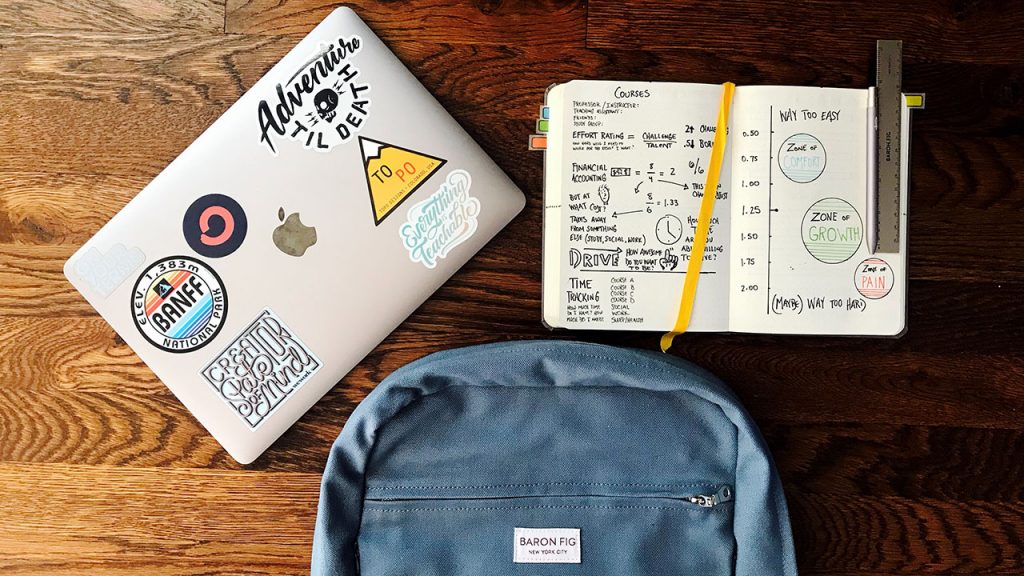 Adventure
'TIL DEATH
TO
PO
TOPO DESIGNS · COLORADO, USA
Everything
is
Teachable
ELEV. 1,383m
BANFF
NATIONAL PARK
CREATOR
is a
State
of Mind
COURSES
PROFESSOR / INSTRUCTOR:
TEACHING ASSISTANT:
FRIENDS:
STUDY GROUP:
EFFORT RATING = CHALLENGE
TALENT
FINANCIAL
ACCOUNTING = 8 = 2
4
BUT AT
WHAT COST?
8 = 1.33
6
TAKES AWAY
FROM SOMETHING
ELSE (STUDY, SOCIAL, WORK)
DRIVE
HOW AWESOME
DO YOU WANT
TO BE?
TIME
TRACKING
HOW MUCH TIME
DO I HAVE? HOW
MUCH DO I NEED?
COURSE A
COURSE B
COURSE C
COURSE D
SOCIAL
WORK
SLEEP/HEALTH
WAY TOO EASY
0.50
0.75
1.00
1.25
1.50
1.75
2.00
ZONE OF
COMFORT
ZONE OF
GROWTH
ZONE OF
PAIN
(MAYBE) WAY TOO HARD
BARON FIG
BARON FIG
NEW YORK CITY